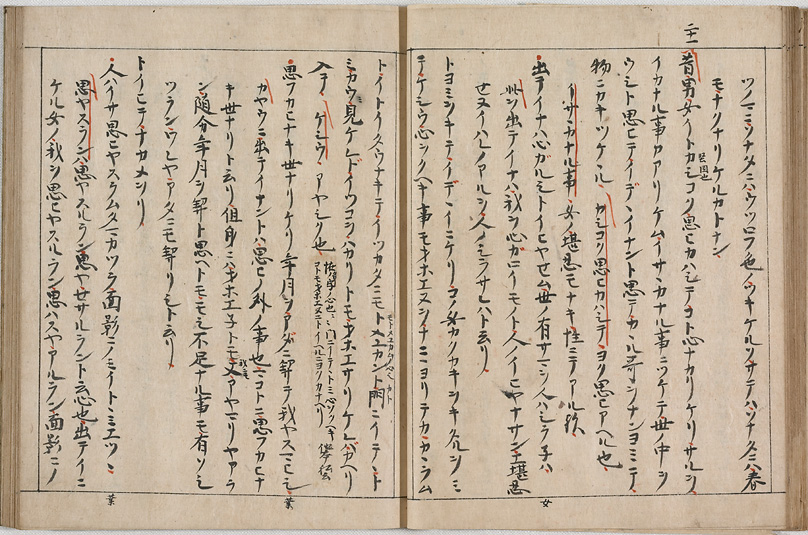 モナクナリケルカトナン
廿一
昔男女イトカシコク思ヒカハシテコト心ナカリケリサルヲ
イカナル事カアリケムイサヽカナル事ニツケテ世ノ中ヲ
ウシト思ヒテイデヽイナント思テカヽル哥ヲナンヨミテ
物ニカキツケケル カシコク思ヒカハシテヨク思ヒアヘル也
イサヽカナル事 女ノ堪忍モナキ性ニテアル歟
出テイナハ心カルシトイヒヤセム世ノ有サマヲ人ハシラ子ハ
此ヲ出テイナハ我ヲ心カロイモノト人ノイヒヤナサン其堪忍
セヌイハレノアルヲ人ノシラサレハト云リ
トヨミヲキテイデヽイニケリコノ女カクカキヲキケルヲミ
テケシウ心ヲクヘキ事モオホエヌヲナニヨリテカカヽラム
女
トイトイタウナキテイツカタニモトメユカント門ニイテヽト
ミカウ見ケレドイツコヲハカリトモオホエサリケレバカヘリ
入テ ケシウ アヤシク也
思フカヒナキ世ナリケリ年月ヲアダニ契テ我ヤスマヒシ
カヤウニ出テイナントハ思ヒノ外ノ事也コトニ思フカヒナ
キ世ナリト云リ但自ニハオホエ子トモ又アヤマリヤアラ
ン随分年月ヲ契ト思ヘトモモシ不足ナル事モ有ツシ
ツランウシヤアダニモ契リシト云リ
トイヒテナカメヲリ
人ハイサ思ヒヤスラム久マカツラ面影ニノミイトヽミエツヽ
思ヤスランハ思ヤスルラン思ヤセサルラント云心也出テイニ
ケル女ノ我ヲ思ヒヤスルラン思ハスヤアルラン面影ニノ